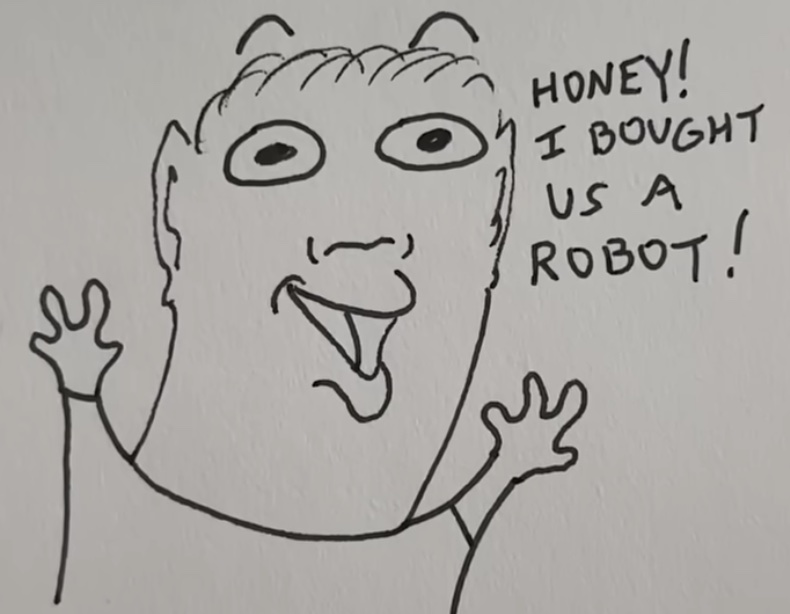 HONEY!
I BOUGHT
US A
ROBOT!